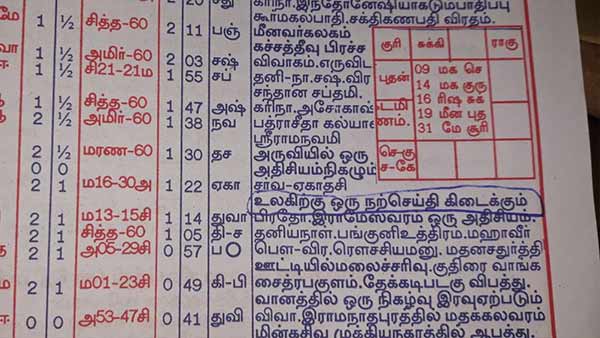 மே 1 ½ சித்த-60 2 20 சது கரிநா.இந்தோனேஷியாகடும்பாதிப்பு
கூர்மகல்பாதி.சக்திகணபதி விரதம்.
1 ½ அமிர்-60 2 11 பஞ் மீனவர்கலகம்
கச்சத்தீவு பிரச்ச
2 03 சஷ் விவாகம்.எருவிட
1 ½ சி21-21ம 1 55 சப் தனி-நா.சஷ்.விர
சந்தான சப்தமி.
1 ½ சித்த-60 1 47 அஷ் கரிநா.அசோகாஷ்
2 ½ அமிர்-60 1 38 நவ பத்ராசீதா கல்யா
ஸ்ரீராமநவமி
2 ½ மரண-60 1 30 தச அருவியில் ஒரு
0 0 அதிசியம்நிகழும்
2 1 ம16-30அ 1 22 ஏகா சாவ-ஏகாதசி
உலகிற்கு ஒரு நற்செய்தி கிடைக்கும்
2 1 ம13-15சி 1 14 துவா பிரதோ.இராமேஸ்வரம் ஒரு அதிசியம்.
2 1 சித்த-60 1 05 தி-ச தனியநாள்.பங்குனி உத்திரம்.மஹாவீர்
2 1 அ05-29சி 0 57 ப பௌ-விர.ரௌச்சியமனு. மதனசதுர்த்தி
ஊட்டியில்மலைச்சரிவு.குதிரை வாங்க
மே 2 1 ம01-23சி 0 49 கி-பி சைத்ரபகுளம்.தேக்கடிபடகு விபத்து.
வானத்தில் ஒரு நிகழ்வு இரவுஏற்படும்
0 0 அ53-47சி 0 41 துவி விவா.இராமநாதபுரத்தில் மதக்கலவரம்
குரி சுக்கி ராகு
புதன் 09 மக செ
14 மக குரு
16 ரிஷ சுக
19 மீன புத
31 மே சூரி
டமி
ணம்.
செ-கு
ச-கே